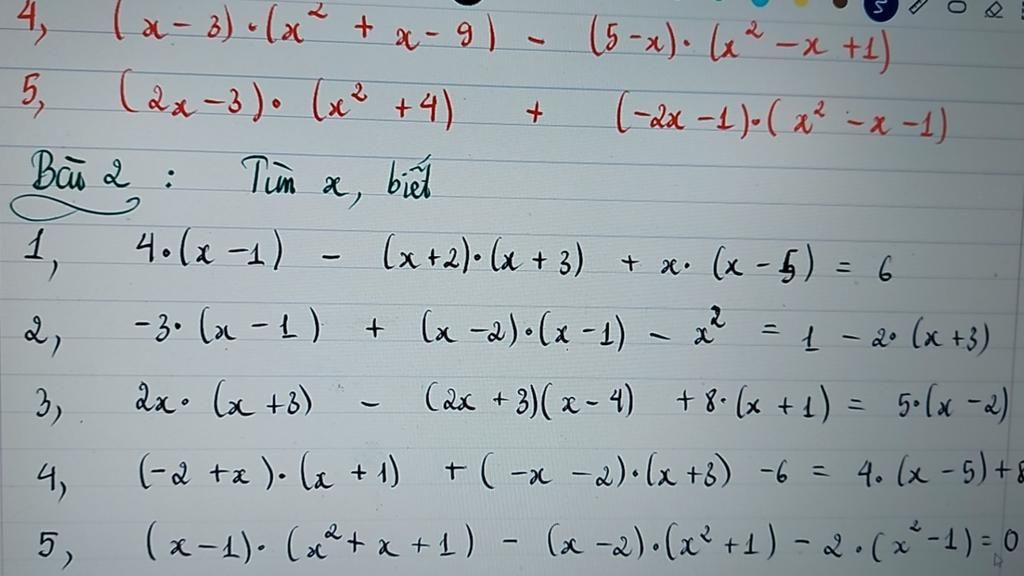 4, (x-3)·(x² + x-9) - (5-x)·(x² -x +1)
5, (2x-3)· (x² +4) + (-2x-1)·(x² -x-1)
Bài 2 : Tìm x, biết
1, 4·(x-1) - (x+2)·(x+3) + x· (x-5) = 6
2, -3·(x-1) + (x-2)·(x-1) - x² = 1 - 2·(x+3)
3, 2x· (x+3) - (2x+3)(x-4) +8·(x+1) = 5·(x-2)
4, (-2+x)·(x+1) +(-x-2)·(x+3) -6 = 4.(x-5)+8
5, (x-1)· (x²+x+1) - (x-2)·(x²+1) - 2·(x²-1)=0